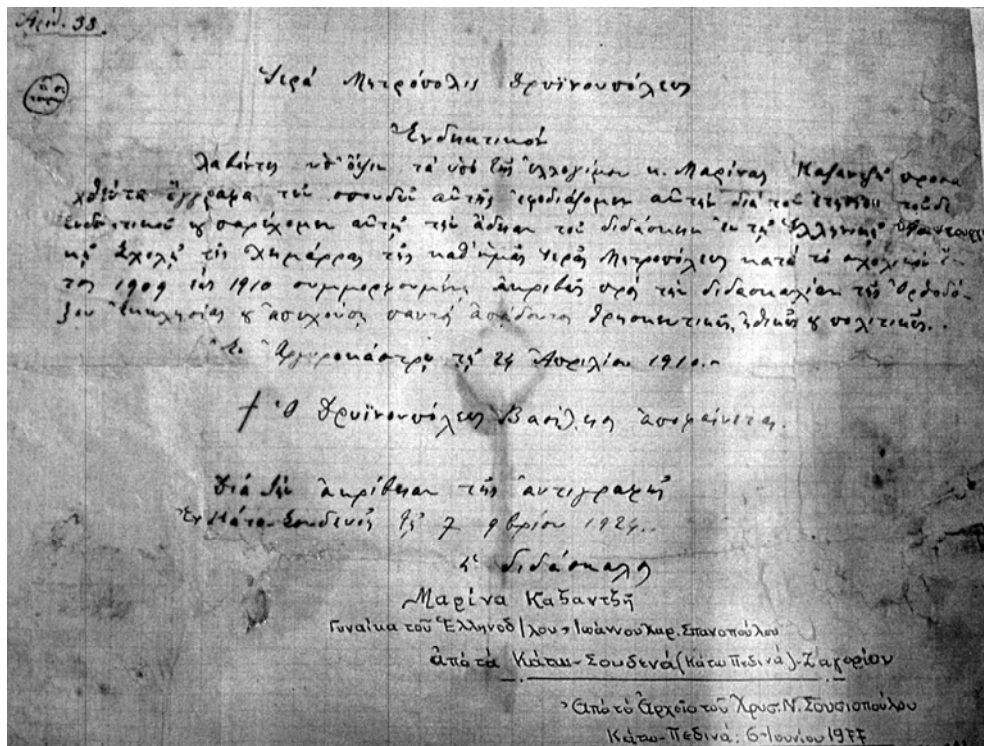 Αριθ. 38.
Ἱερά Μητρόπολις Δρυϊνουπόλεως
Ἐνδεικτικόν
λαβόντες ὑπ' ὄψιν τά ὑπό τῆς ἐλλογίμου κ. Μαρίνας Καζαντζῆ προσα
χθέντα ἔγγραφα τῶν σπουδῶν αὐτῆς ἐφοδιάζομεν αὐτήν διά τοῦ ἐτησίου τοῦδε
ἐνδεικτικοῦ & παρέχομεν αὐτῇ τήν ἄδειαν τοῦ διδάσκειν ἐν τῇ Ἑλληνικῇ Ὑφαντουργι
κῇ Σχολῇ τῆς Χημάρρας τῆς καθ' ἡμᾶς Ἱερᾶς Μητροπόλεως κατά τό σχολικόν ἔ
τος 1909 ἕως 1910 συμμορφουμένη ἀκριβῶς πρός τήν διδασκαλίαν τῆς Ὀρθοδό
ξου Ἐκκλησίας & ἀπεχούση παντός ἀπᾴδοντος θρησκευτικῶς, ἠθικῶς & πολιτικῶς.
Ἐν Ἀργυροκάστρῳ τῇ 24 Ἀπριλίου 1910.
† Ὁ Δρυϊνουπόλεως Βασίλειος ἀποφαίνεται.
Διά τήν ἀκρίβειαν τῆς ἀντιγραφῆς
Ἐν Κάτω-Σουδενοῖς τῇ 7 9βρίου 1924.
Ἡ διδάσκαλος
Μαρίνα Καζαντζῆ
Γυναίκα τοῦ Ἑλληνοδ/λου, Ἰωάννου Χαρ. Σπανοπούλου
ἀπό τά Κάτω-Σουδενά (Κάτω Πεδινά)-Ζαγορίου
Ἀπό τό Ἀρχεῖο τοῦ Χρυσ. Ν. Σουσιοπούλου
Κάτω-Πεδινά: 6-Ἰουνίου 1977